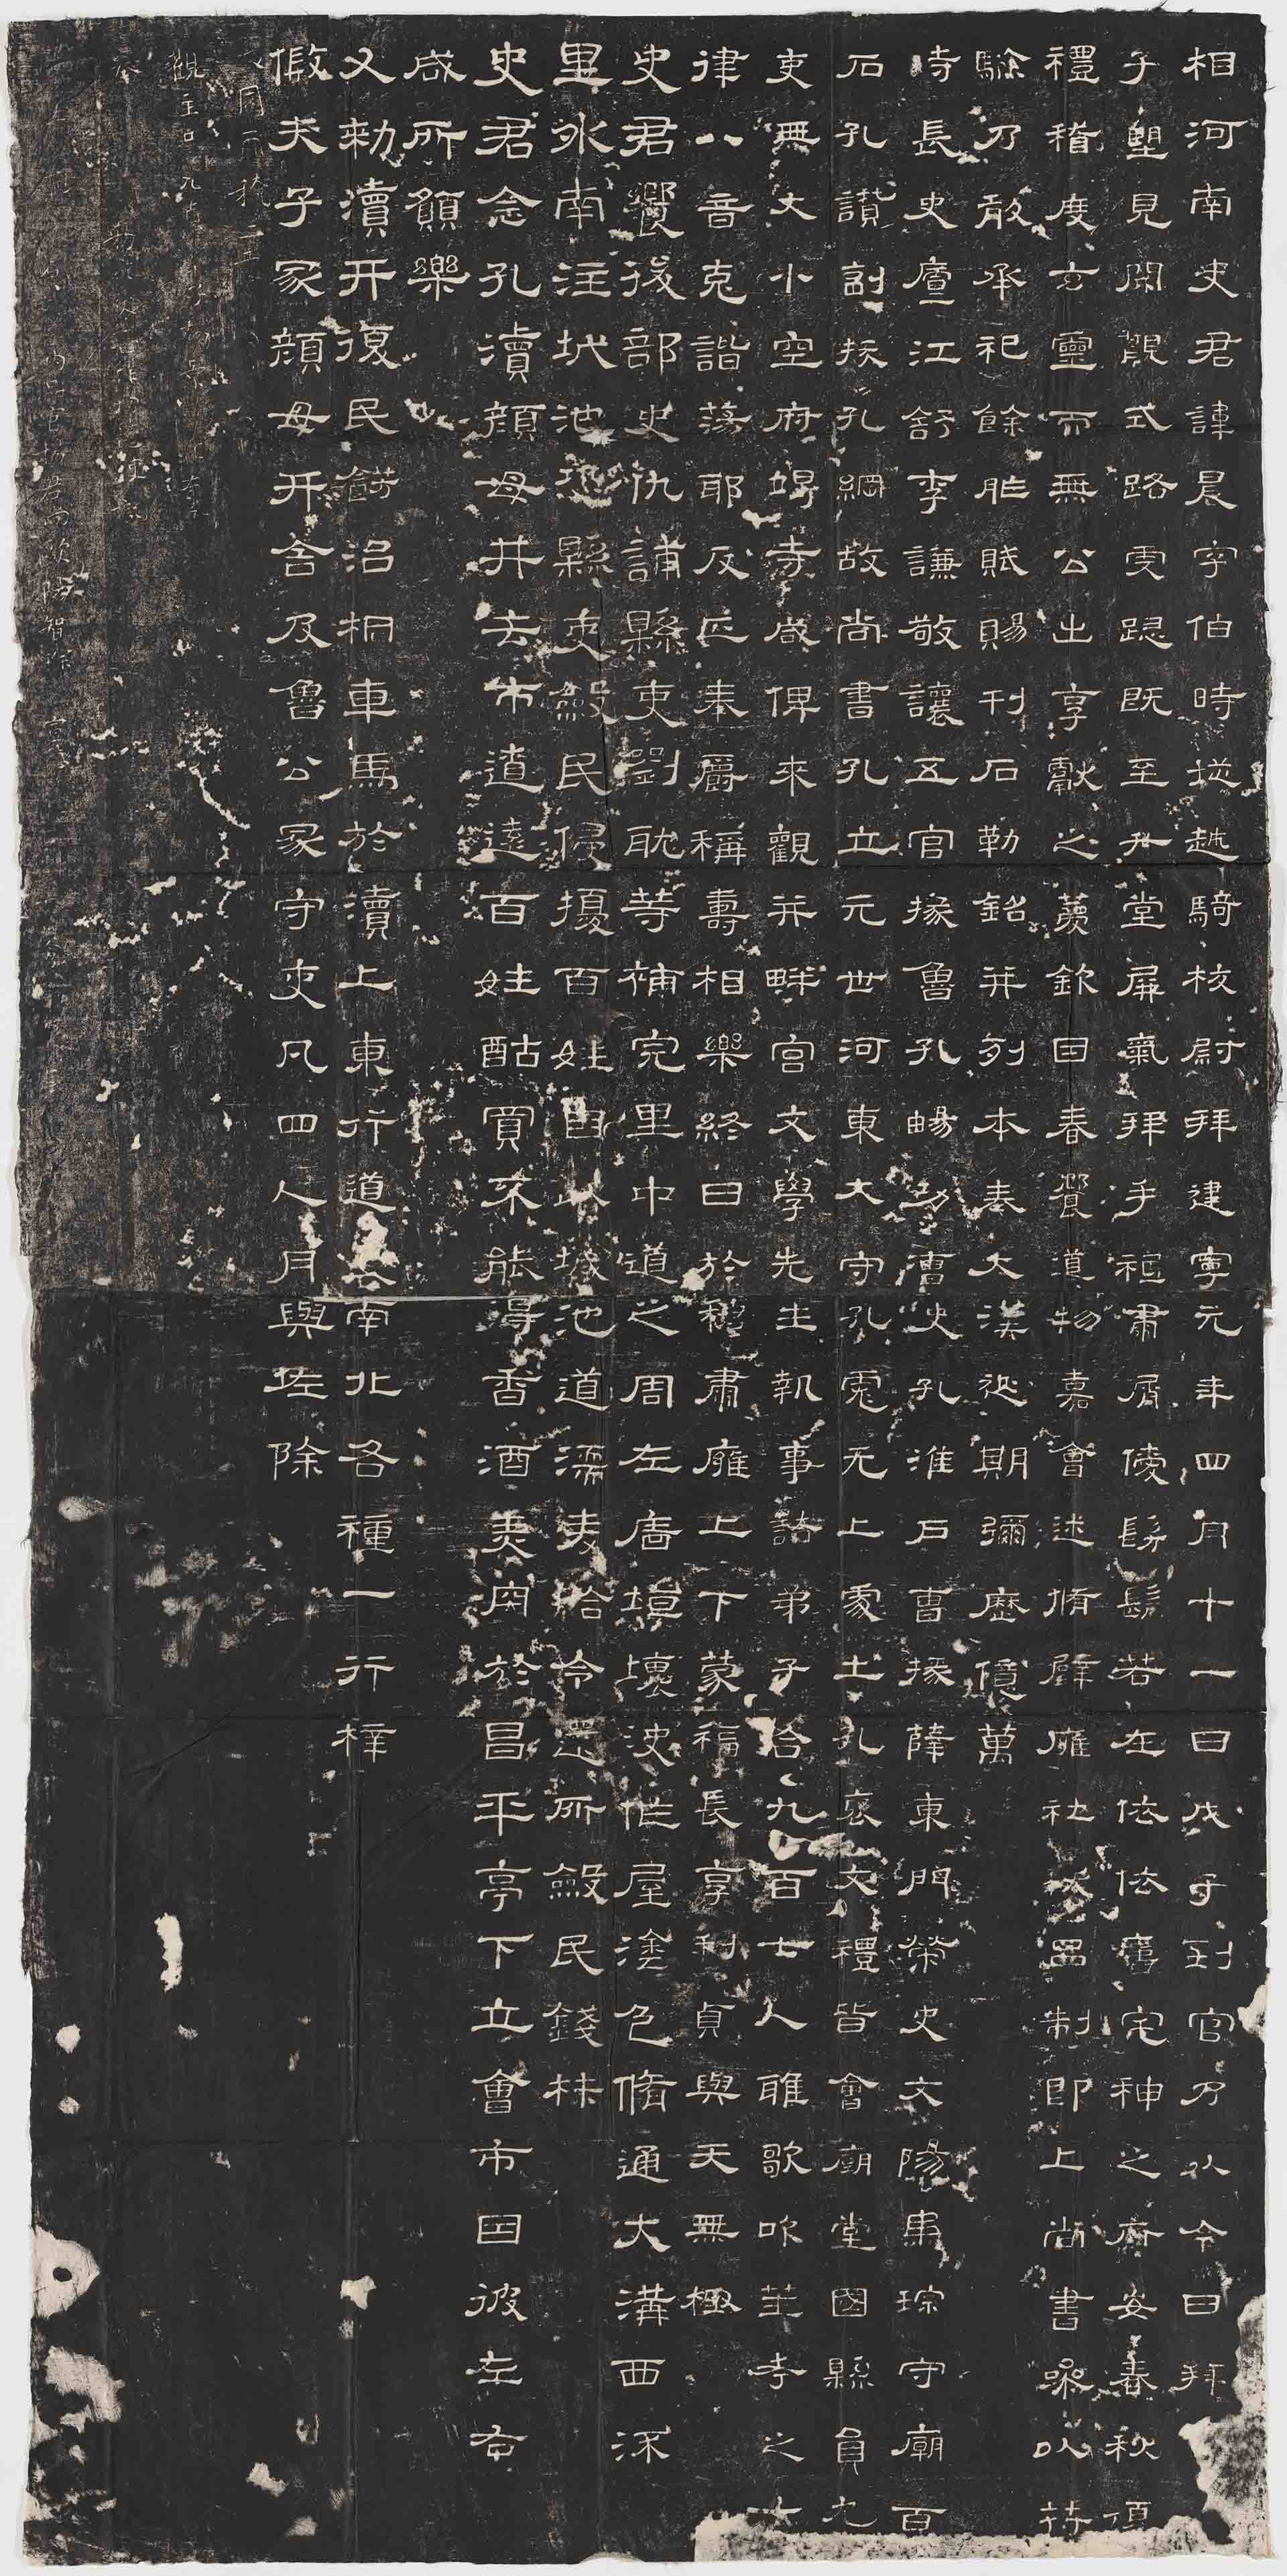 相河南史君諱晨字伯時從越騎校尉拜建寧元年四月十一日戊子到官乃以令日拜
子朢見闕觀式路虔跽既至升堂屏氣拜手祗肅屑僾髣髴若在依依舊宅神之所安春秋復
禮稽度玄靈而無公出享獻之薦欽因春饗導物嘉會述脩辟廱社稷品制即上尚書參以符
驗乃敢承祀餘胙賦賜刊石勒銘并列本奏大漢延期彌歷億萬
時長史廬江舒李謙敬讓五官掾魯孔暢功曹史孔淮戶曹掾薛東門榮史文陽馬琮守廟百
石孔讚副掾孔綱故尚書孔立元世河東大守孔彪元上處士孔褒文禮皆會廟堂國縣員冗
吏無大小空府竭寺咸俾來觀并畔宮文學先生執事諸弟子合九百七人雅歌吹笙考之六
律八音克諧蕩邪反正奉爵稱壽相樂終日於穆肅廱上下蒙福長享利貞與天無極
史君饗後部史仇誧縣吏劉耽等補完里中道之周左廧垣壞決作屋塗色脩通大溝西流
里外南注城池恐縣吏斂民侵擾百姓自以城池道濡麥給令還所斂民錢材
史君念孔瀆顏母井去市遼遠百姓酤買不能得香酒美肉於昌平亭下立會市因彼左右
咸所願樂
又勑瀆井復民餝治桐車馬於瀆上東行道表南北各種一行梓
假夫子冢顏母井舍及魯公冢守吏凡四人月與佐除